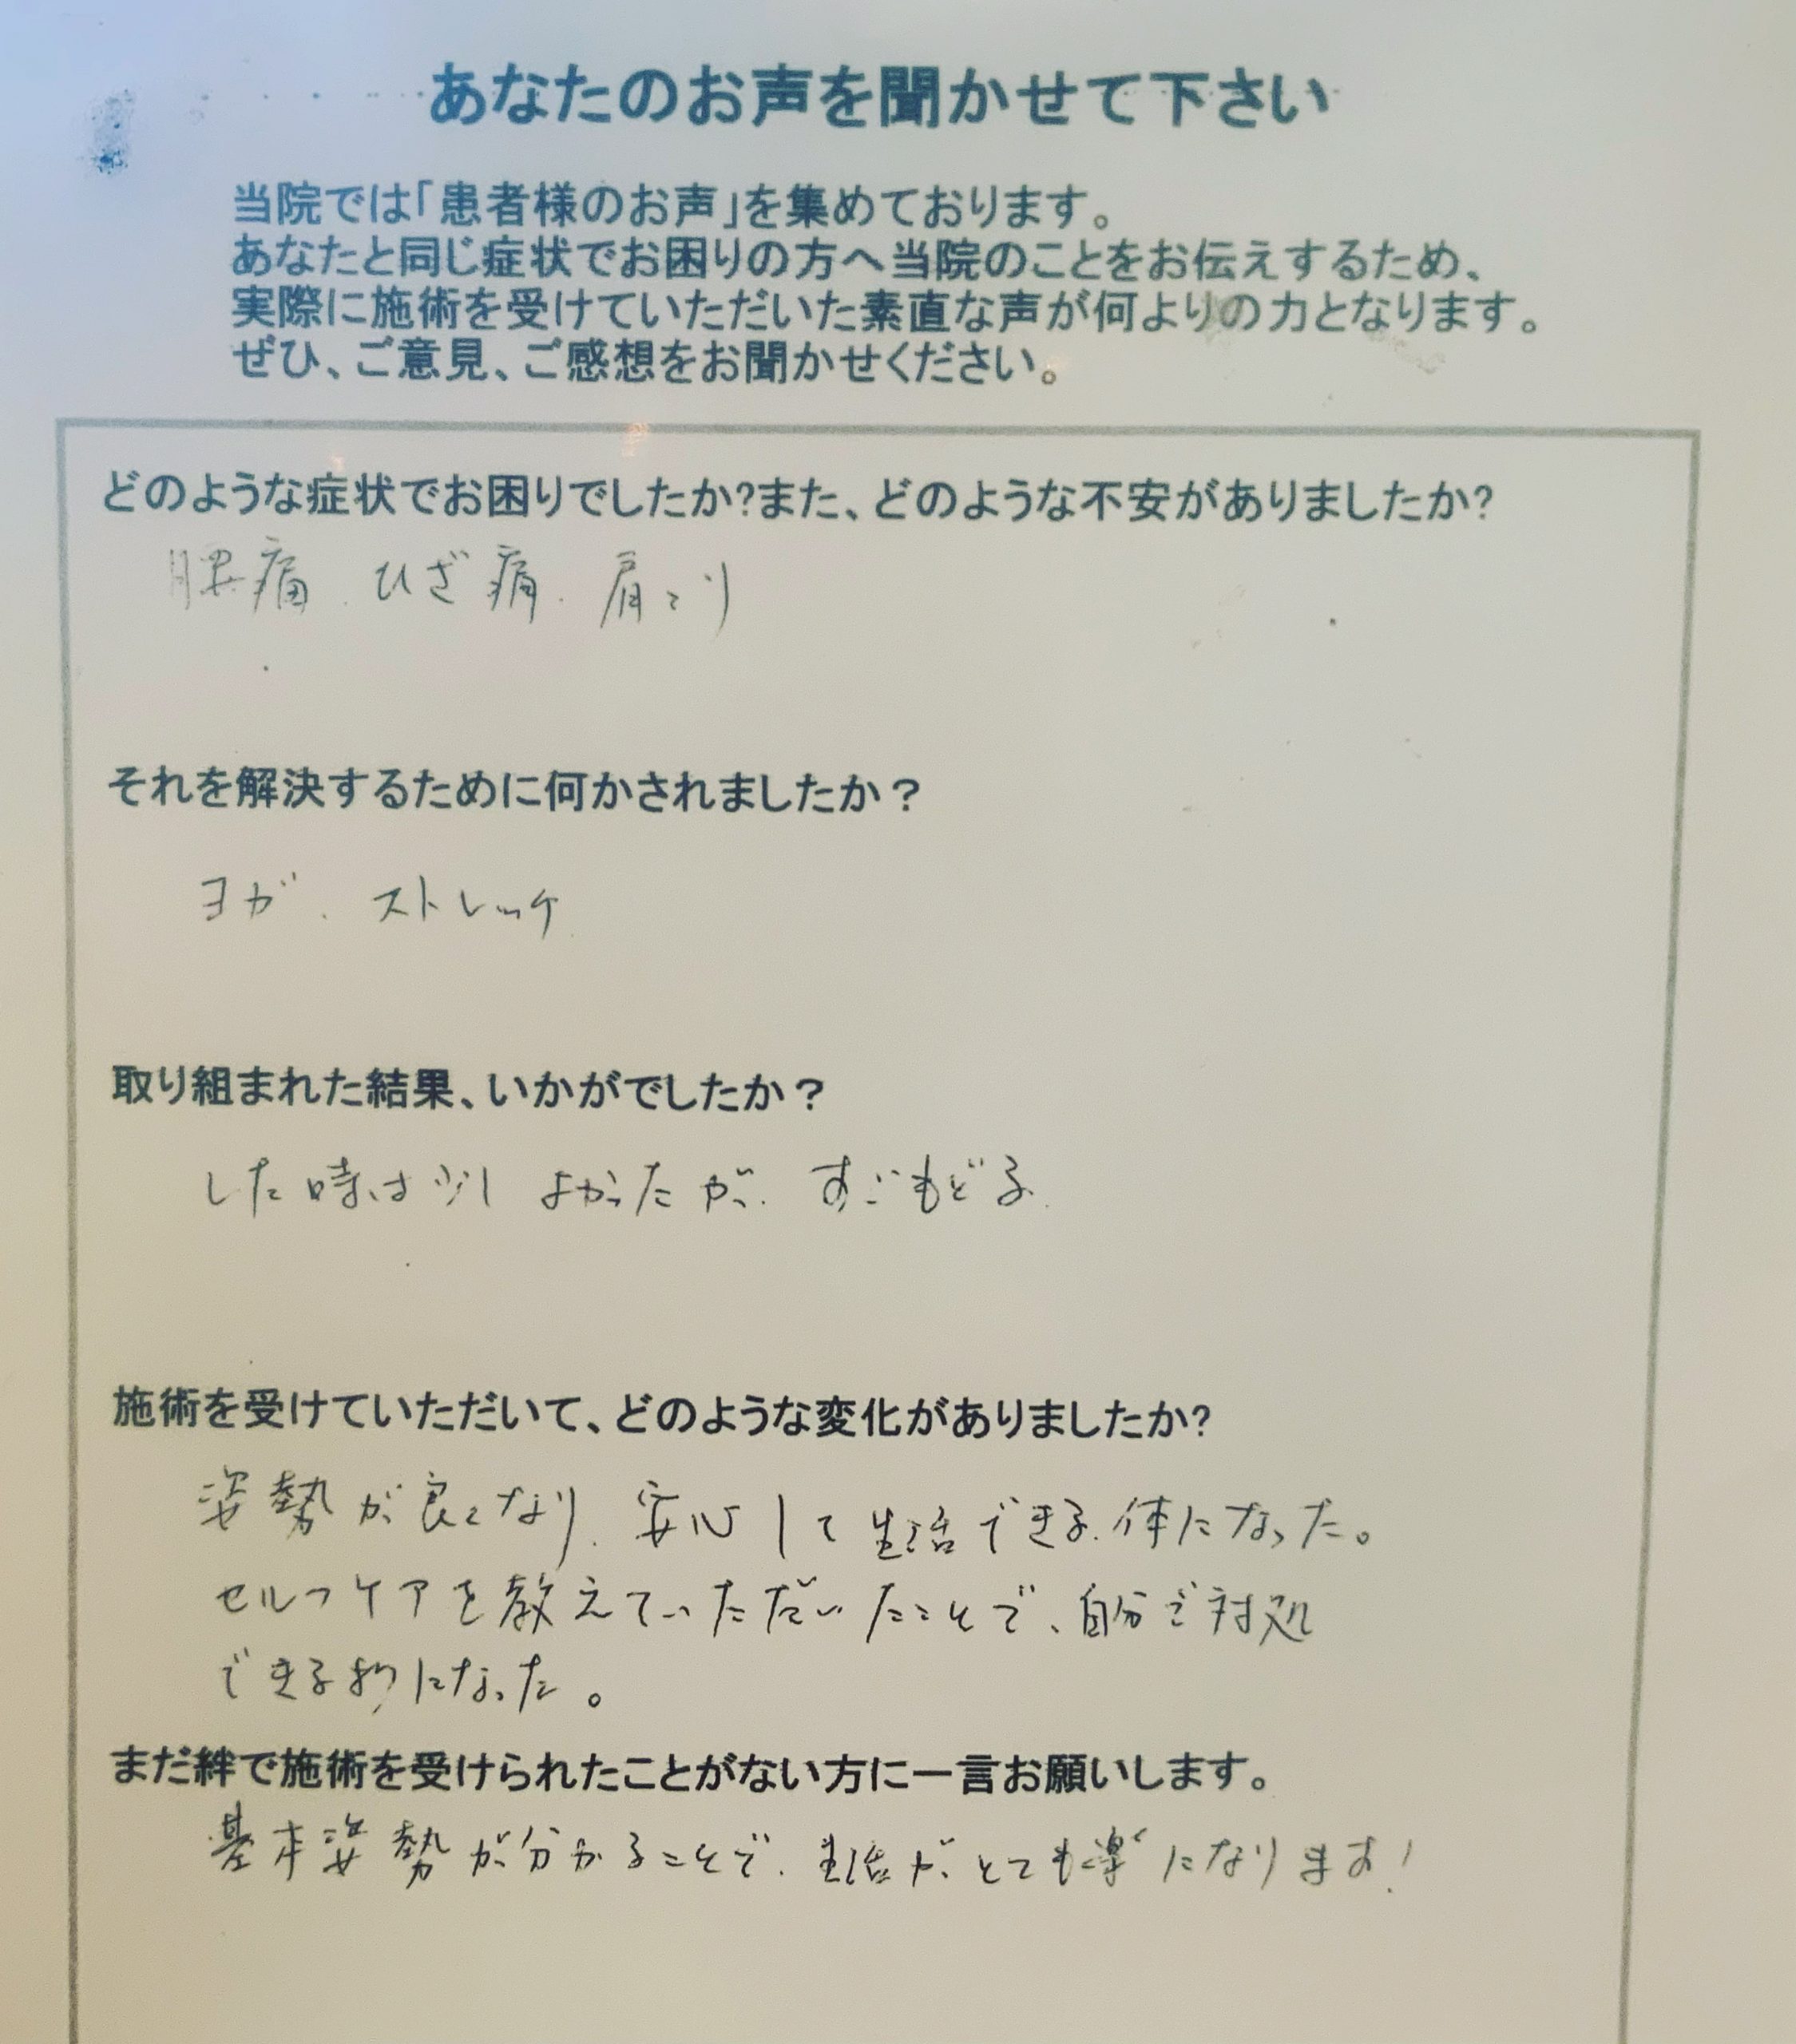 あなたのお声を聞かせて下さい
当院では「患者様のお声」を集めております。
あなたと同じ症状でお困りの方へ当院のことをお伝えするため、
実際に施術を受けていただいた素直な声が何よりの力となります。
ぜひ、ご意見、ご感想をお聞かせください。
どのような症状でお困りでしたか?また、どのような不安がありましたか?
腰痛、ひざ痛、肩こり
それを解決するために何かされましたか？
ヨガ、ストレッチ
取り組まれた結果、いかがでしたか？
した時は少しよかったが、すごもどる
施術を受けていただいて、どのような変化がありましたか?
姿勢が良くなり、安心して生活できる体になった。
セルフケアを教えていただいたことで、自分で対処
できる様になった。
まだ絆で施術を受けられたことがない方に一言お願いします。
基本姿勢が分かることで、生活がとても楽になります！